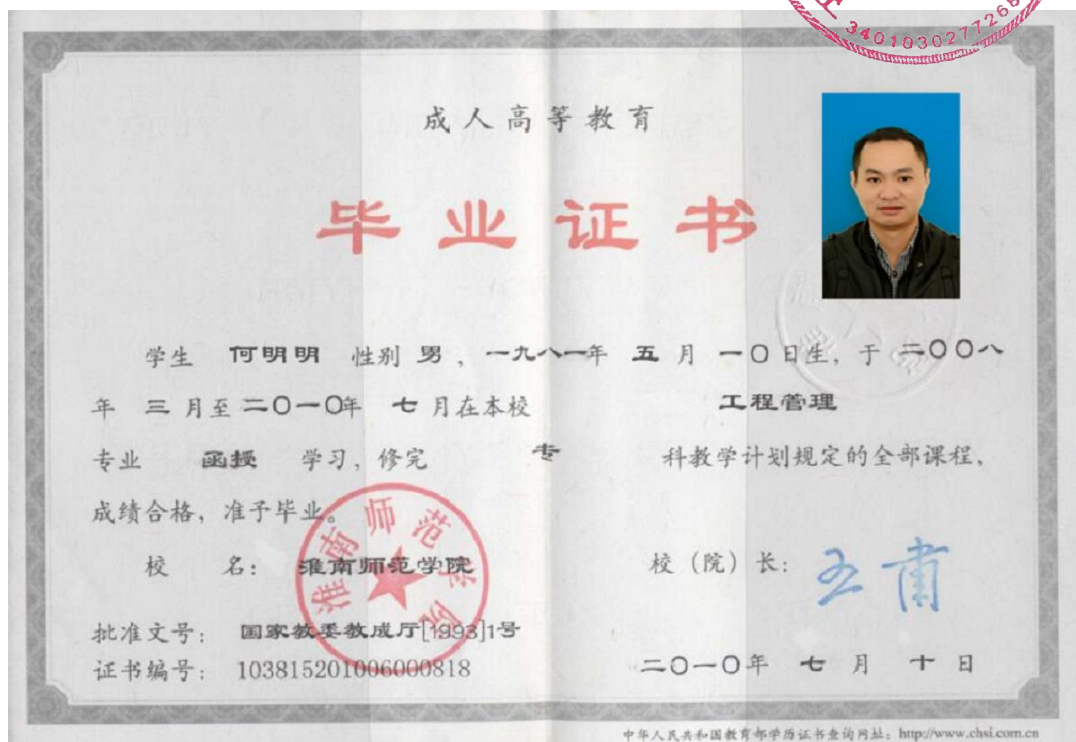 3401030277268
成人高等教育
毕业证书
学生 何明明 性别 男，一九八一年 五 月 一〇 日生，于 二〇〇八
年 三 月至 二〇一〇年 七 月在本校 工程管理
专业 函授 学习，修完 专 科教学计划规定的全部课程，
成绩合格，准予毕业。
淮南师范学院
校 名： 淮南师范学院 校（院）长：
批准文号： 国家教委教成厅[1993]1号
证书编号： 103815201006000818 二〇一〇年 七 月 十 日
中华人民共和国教育部学历证书查询网址：http://www.chsi.com.cn